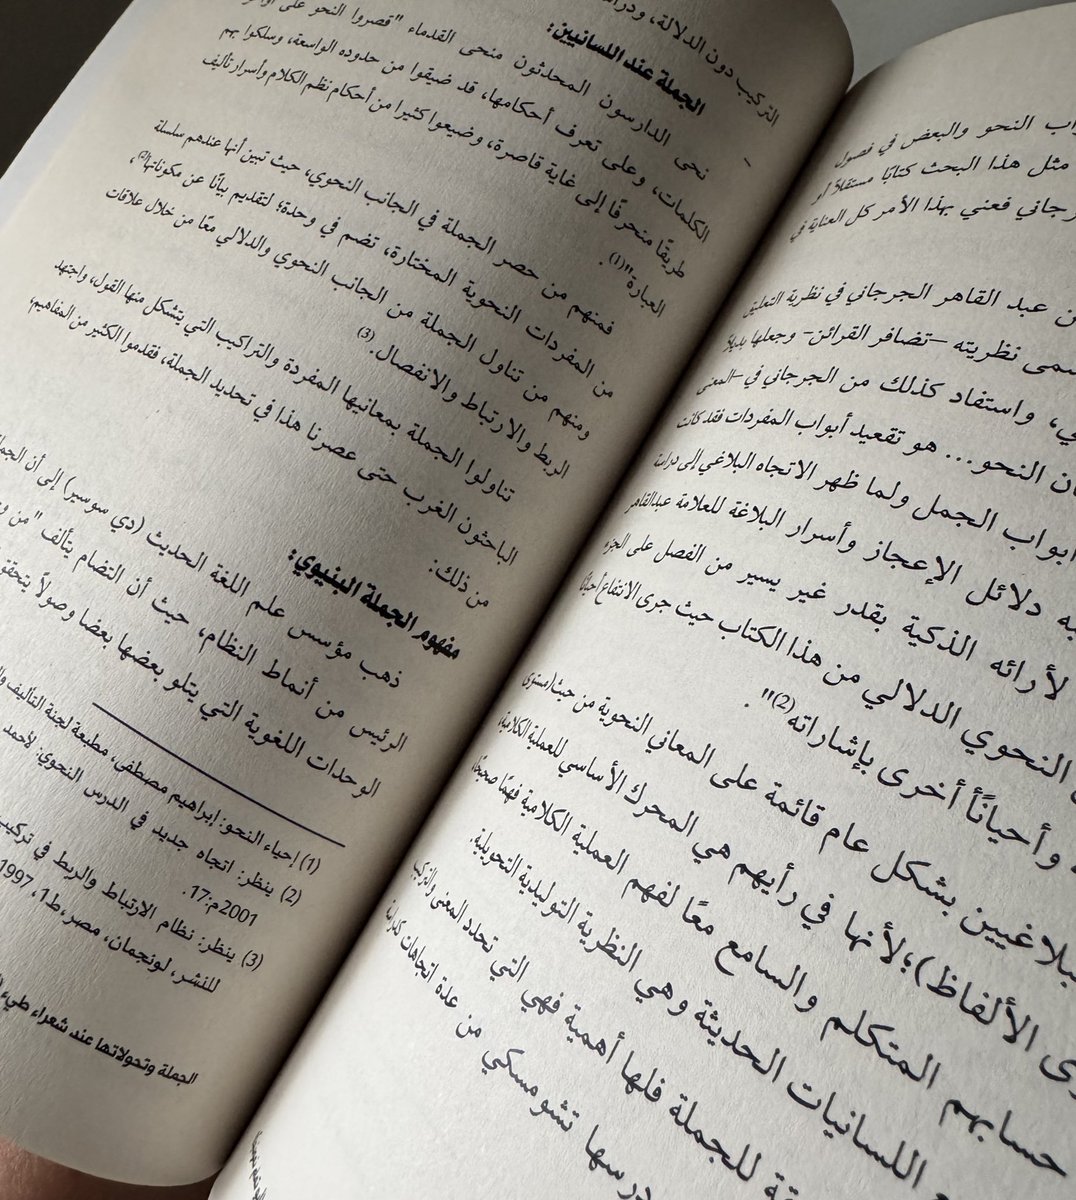 النحو والبعض في فصول
مثل هذا البحث كتابًا مستقلاً أو
فعني بهذا الأمر كل العناية في
عبد القاهر الجرجاني في نظرية التعليق
نظريته –تضافر القرائن– وجعلها بديلاً
واستفاد كذلك من الجرجاني في –المعنى
النحو... هو تقعيد أبواب المفردات فقد كانت
أبواب الجمل ولما ظهر الاتجاه البلاغي إلى دراسة
دلائل الإعجاز وأسرار البلاغة للعلامة عبدالقاهر
لأرائه الذكية بقدر غير يسير من الفصل على الجزء
النحوي الدلالي من هذا الكتاب حيث جرى الانتفاع أحيانًا
وأحيانًأ أخرى بإشاراته(2)".
بشكل عام قائمة على المعاني النحوية من حيث(مستوى
الألفاظ)؛لأنها في رأيهم هي المحرك الأساسي للعملية الكلامية،
حسابهم المتكلم والسامع معًا لفهم العملية الكلامية فهمًا صحيحًا،
اللسانيات الحديثة وهي النظرية التوليدية التحويلية.
للجملة فلها أهمية فهي التي تحدد المعنى والتركيب
تشومسكي من عدة اتجاهات كدراسة
التركيب دون الدلالة،
الجملة عند اللسانيين:
نحى الدارسون المحدثون منحى القدماء "قصروا النحو على
الكلمات، وعلى تعرف أحكامها، قد ضيقوا من حدوده الواسعة، وسلكوا بهم
طريقًا منحرفًا إلى غاية قاصرة، وضيعوا كثيرا من أحكام نظم الكلام وأسرار تأليف
العبارة"(1).
فمنهم من حصر الجملة في الجانب النحوي، حيث تبين أنها عندهم سلسلة
من المفردات النحوية المختارة، تضم في وحدة؛ لتقديم بيانًا عن مكوناتها(2)،
ومنهم من تناول الجملة من الجانب النحوي والدلالي معًا من خلال علاقات
الربط والارتباط والانفصال.(3)
تناولوا الجملة بمعانيها المفردة والتراكيب التي يتشكل منها القول، واجتهد
الباحثون الغرب حتى عصرنا هذا في تحديد الجملة، فقدموا الكثير من المفاهيم،
من ذلك:
مفهوم الجملة البنيوي:
ذهب مؤسس علم اللغة الحديث (دي سوسير) إلى أن
الرئيس من أنماط النظام، حيث أن التضام يتألف "من
الوحدات اللغوية التي يتلو بعضها بعضا وصولاً
(1) إحياء النحو: إبراهيم مصطفى، مطبعة لجنة التأليف
(2) ينظر: اتجاه جديد في الدرس النحوي: لأحمد
2001م:17.
(3) ينظر: نظام الارتباط والربط في تركيب
للنشر، لونجمان، مصر،ط1، 1997
الجملة وتحولاتها عند شعراء طيء